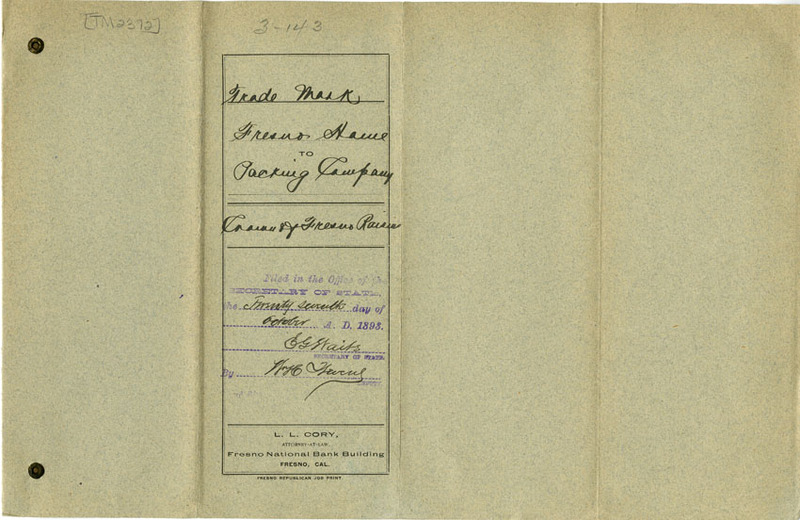 [TM2392]
3-143
Trade Mark
Fresno Home
TO
Packing Company
Crown of Fresno Raisins
Filed in the Office of the
SECRETARY OF STATE,
the Twenty seventh day of
October A. D. 1893.
E G Waite
SECRETARY OF STATE.
By W H
DEPUTY.
L. L. CORY,
ATTORNEY-AT-LAW,
Fresno National Bank Building
FRESNO, CAL.
FRESNO REPUBLICAN JOB PRINT